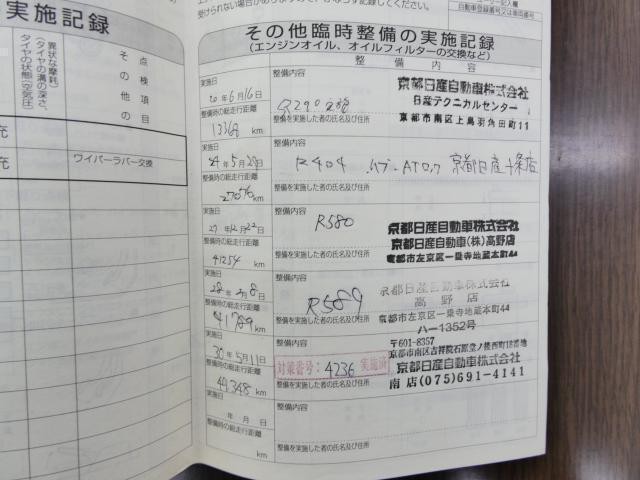 実施記録
点検項目
その他
異状な摩耗）
（タイヤの溝の深さ、
タイヤの状態（空気圧）
ワイパーラバー交換
自動車登録番号又は車両番号
その他臨時整備の実施記録
（エンジンオイル、オイルフィルターの交換など）
整備内容
実施日
20年6月16日
整備時の総走行距離
13368 km
整備内容
整備を実施した者の氏名及び住所
京都日産自動車株式会社
日産テクニカルセンター
京都市南区上鳥羽角田町11
実施日
24年5月28日
整備時の総走行距離
27076 km
整備内容
R404
京都日産十条店
整備を実施した者の氏名及び住所
実施日
27年12月22日
整備時の総走行距離
41254 km
整備内容
R580
整備を実施した者の氏名及び住所
京都日産自動車株式会社
京都日産自動車(株)高野店
京都市左京区一乗寺地蔵本町44
実施日
28年2月8日
整備時の総走行距離
41789 km
整備内容
R589
整備を実施した者の氏名及び住所
京都日産自動車株式会社
高野店
京都市左京区一乗寺地蔵本町44
ハー1352号
実施日
30年5月11日
整備時の総走行距離
44,348 km
整備内容
対策番号：4236 実施済
整備を実施した者の氏名及び住所
〒601-8357
京都市南区吉祥院石原堂ノ後西町18番地
京都日産自動車株式会社
南店(075)691-4141
年 月 日
整備時の総走行距離
km
整備内容
整備を実施した者の氏名及び住所